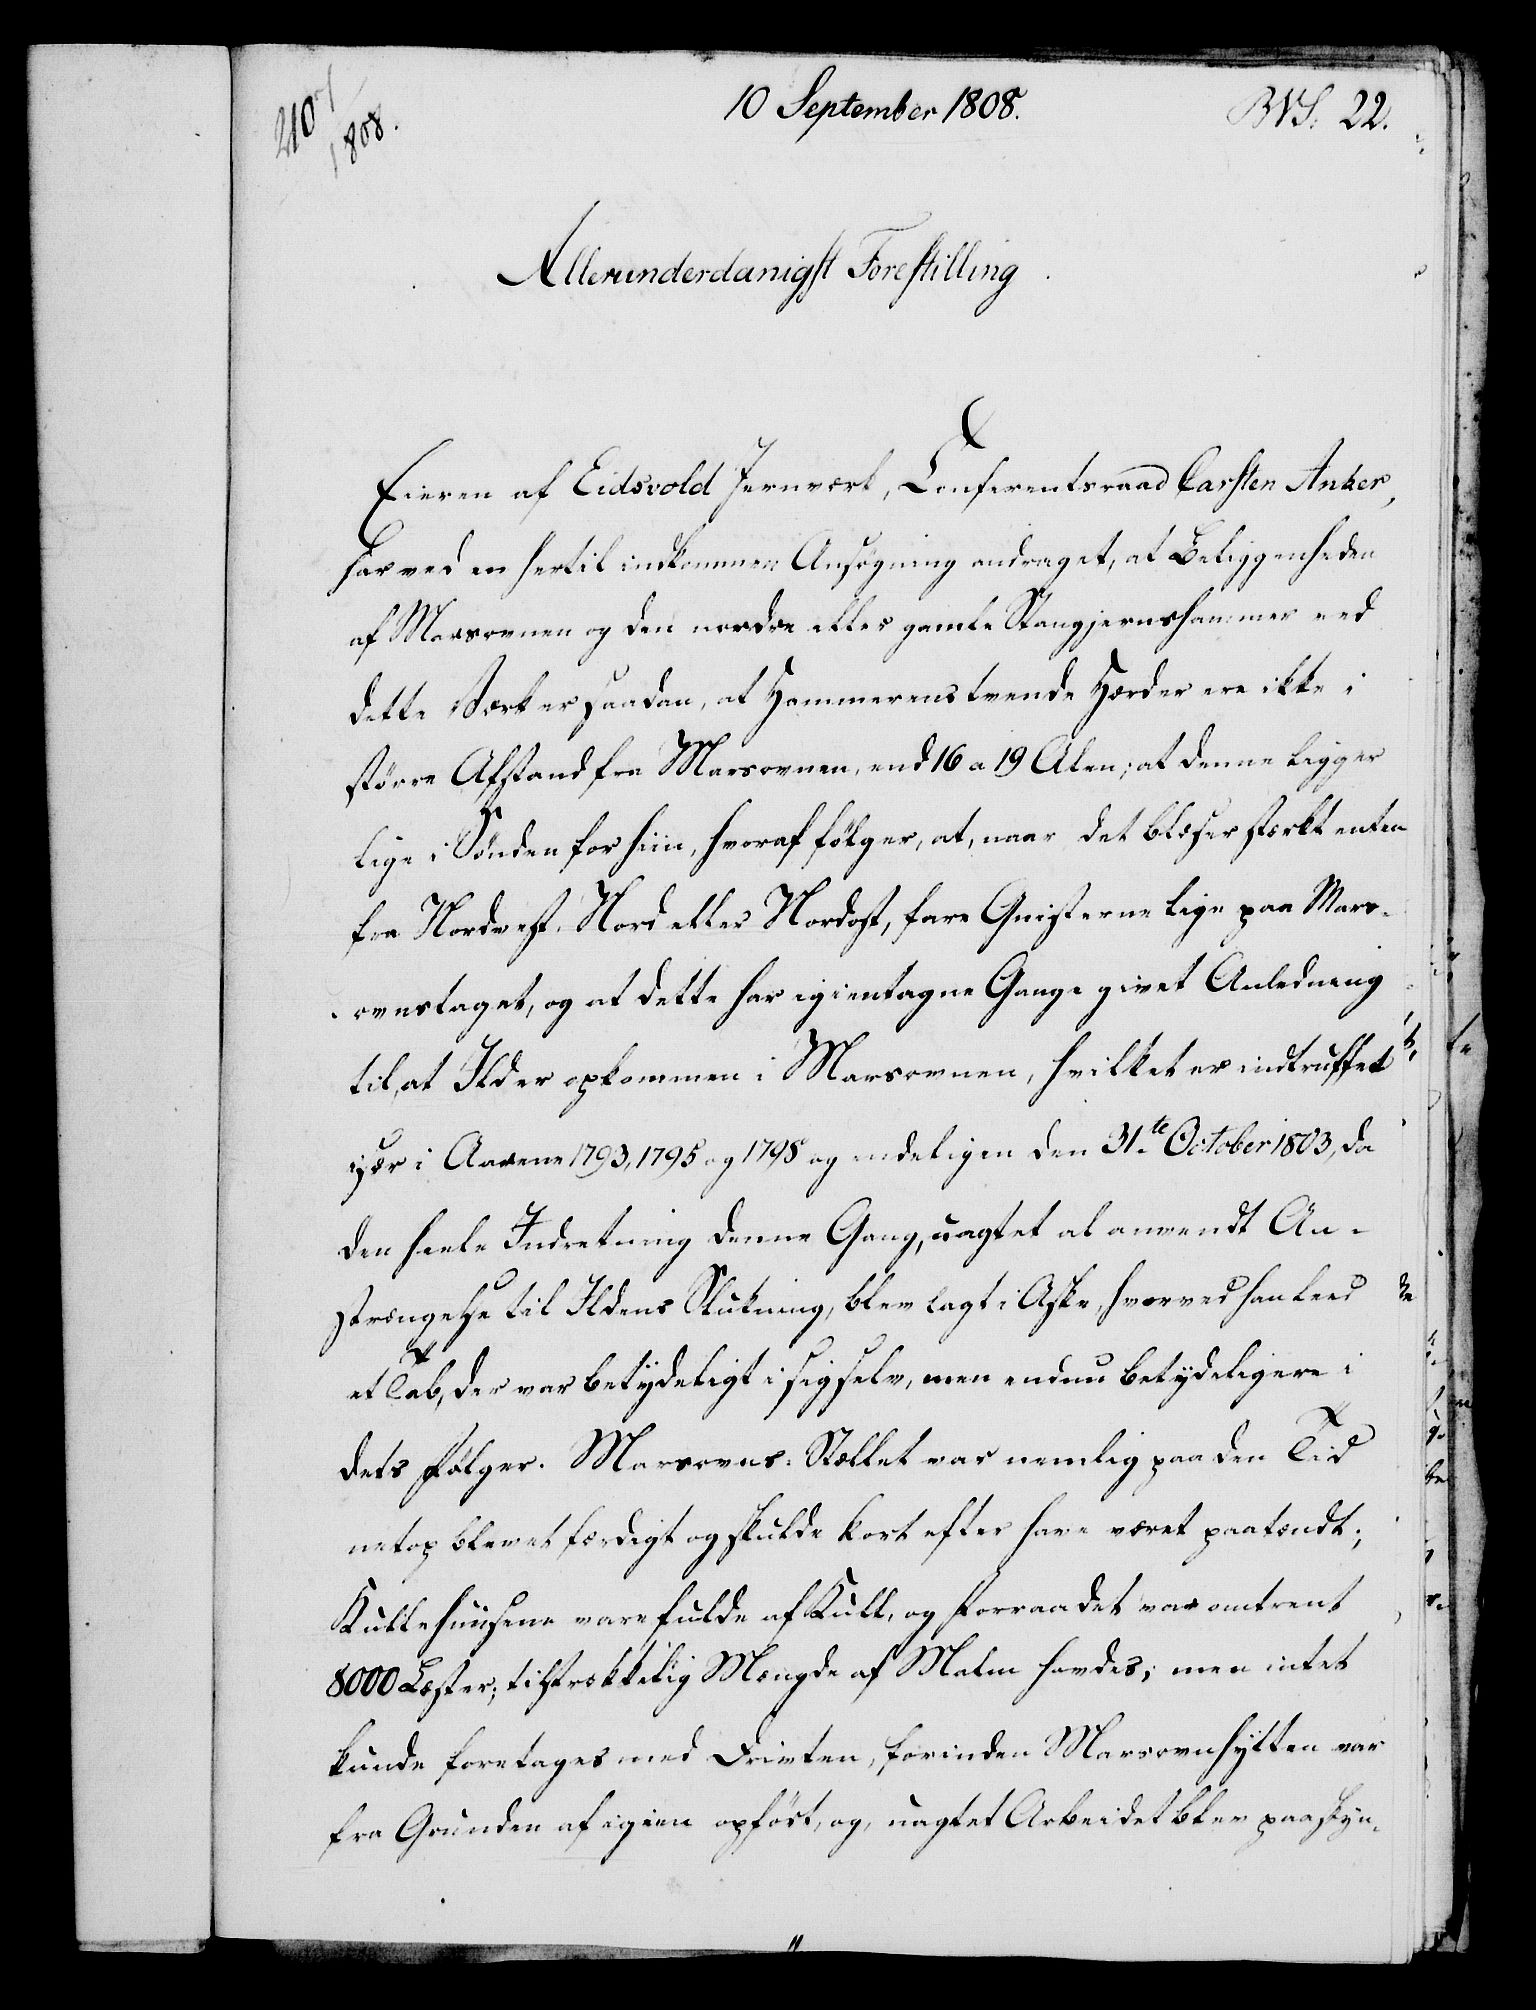 210/1808.
10 September 1808.
BVS: 22.
Allerunderdanigst Forestilling
Eieren af Eidsvold Jernverk, Conferentsraad Carsten Anker,
har ved en hertil indkommen Ansøgning andraget, at Beliggenheden
af Marsovnen og den nordre eller gamle Stangjernshammer ved
dette Værk er saadan, at Hammerens tvende Hærder ere ikke i
større Afstand fra Marsovnen, end 16 a 19 Alen; at denne ligger
lige i Sønden for hiin, hvoraf følger, at, naar det blæser stærkt enten
fra Nordvest, Nord eller Nordost, fare Gnisterne lige paa Mars-
ovnstaget, og at dette har igientagne Gange givet Anledning
til, at Ild er opkommen i Marsovnen, hvilket er indtruffet
især i Aarene 1793, 1795 og 1798 og endeligen den 31te October 1803, da
den heele Indretning denne Gang, uagtet al anvendt An-
strængelse til Ildens Slukning, blev lagt i Aske, hvorved han leed
et Tab, der var betydeligt i sig selv, men endnu betydeligere i
dets Følger. Marsovns-Stellet var nemlig paa den Tid
netop blevet færdigt og skulde kort efter have været paatændt;
Kullehuusene vare fulde af Kull, og Forraadet var omtrent
8000 Læster; tilstrækkelig Mængde af Malm havdes; men intet
kunde foretages med Driften, forinden Marsovnhytten var
fra Grunden af igien opført, og, uagtet Arbeidet blev paaskyn-